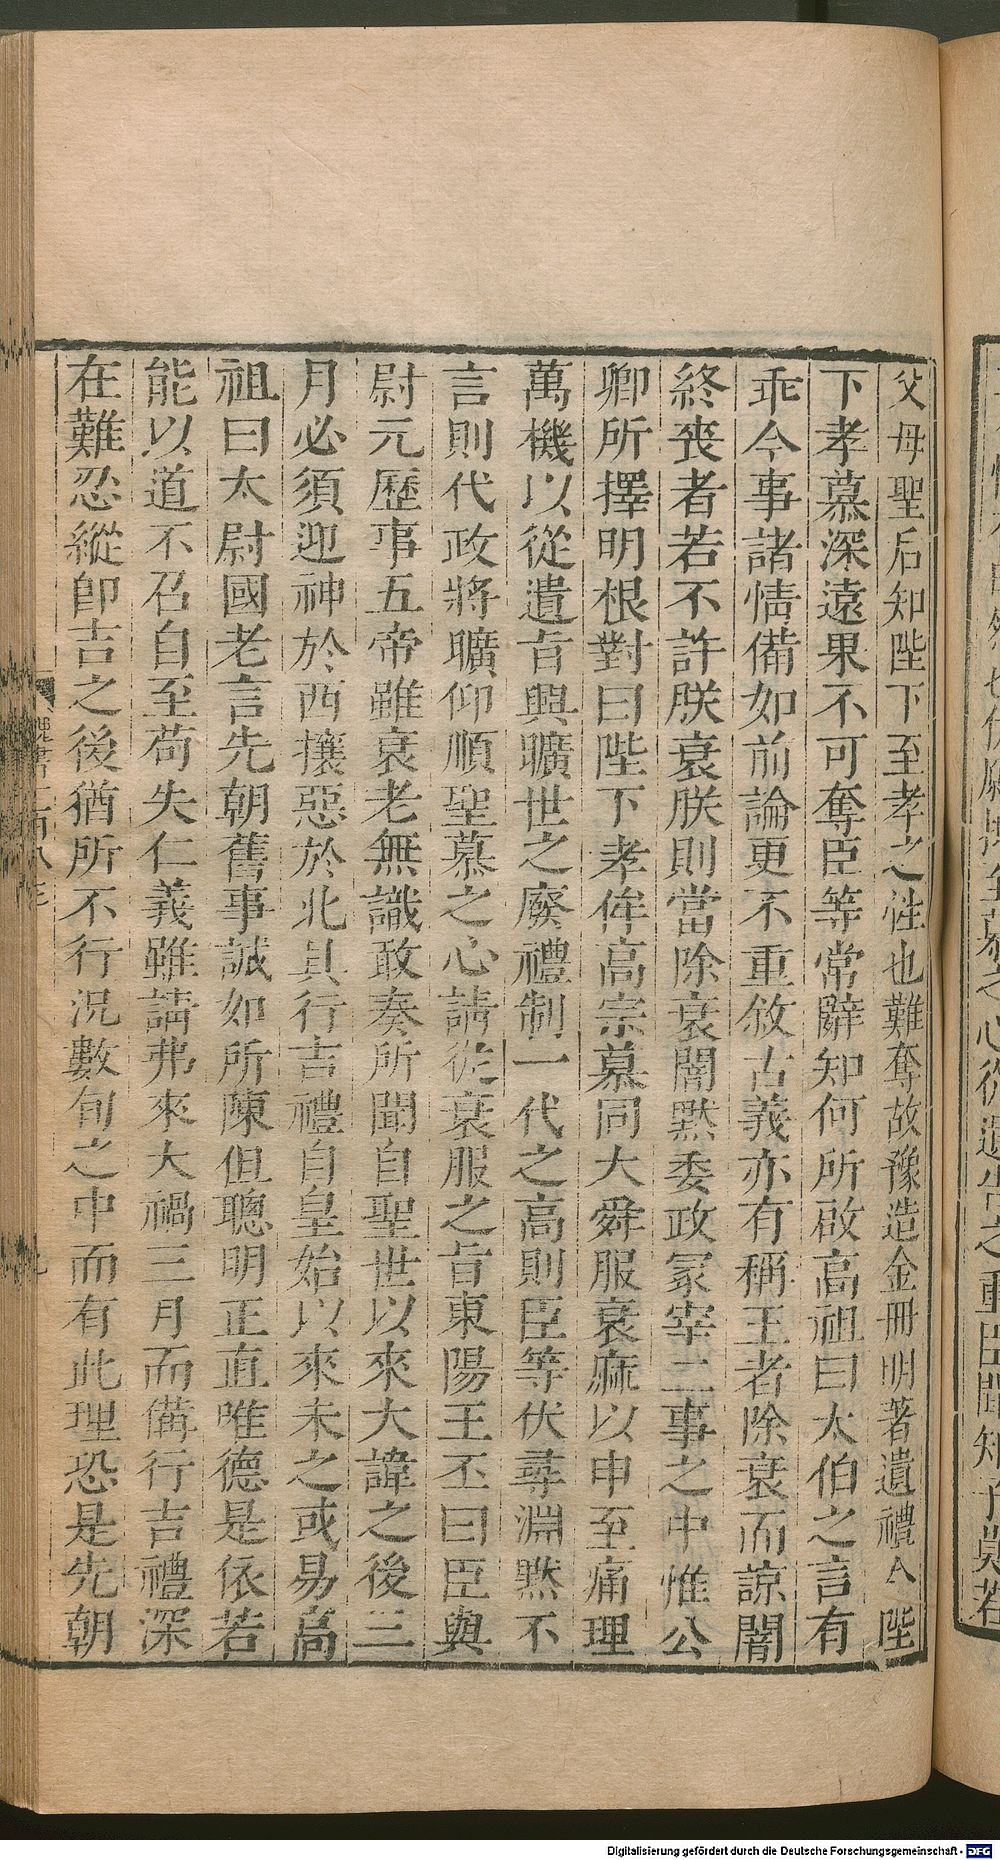 父母聖后知陛下至孝之性也難奪故豫造金冊明著遺禮今陛
下孝慕深遠果不可奪臣等常辭知何所啟高祖曰太伯之言有
乖今事諸情備如前論更不重敘古義亦有稱王者除衰而諒闇
終喪者若不許朕衰朕則當除衰闇默委政冢宰二事之中惟公
卿所擇明根對曰陛下孝侔高宗慕同大舜服衰麻以申至痛理
萬機以從遺旨興曠世之廢禮制一代之高則臣等伏尋淵默不
言則代政將曠仰順聖慕之心請從衰服之旨東陽王丕曰臣與
尉元歷事五帝雖衰老無識敢奏所聞自聖世以來大諱之後三
月必須迎神於西攘惡於北具行吉禮自皇始以來未之或易高
祖曰太尉國老言先朝舊事誠如所陳但聰明正直唯德是依若
能以道不召自至苟失仁義雖請弗來大禍三月而備行吉禮深
在難忍縱即吉之後猶所不行況數旬之中而有此理恐是先朝
魏書一百八之三
Digitalisierung gefördert durch die Deutsche Forschungsgemeinschaft - DFG